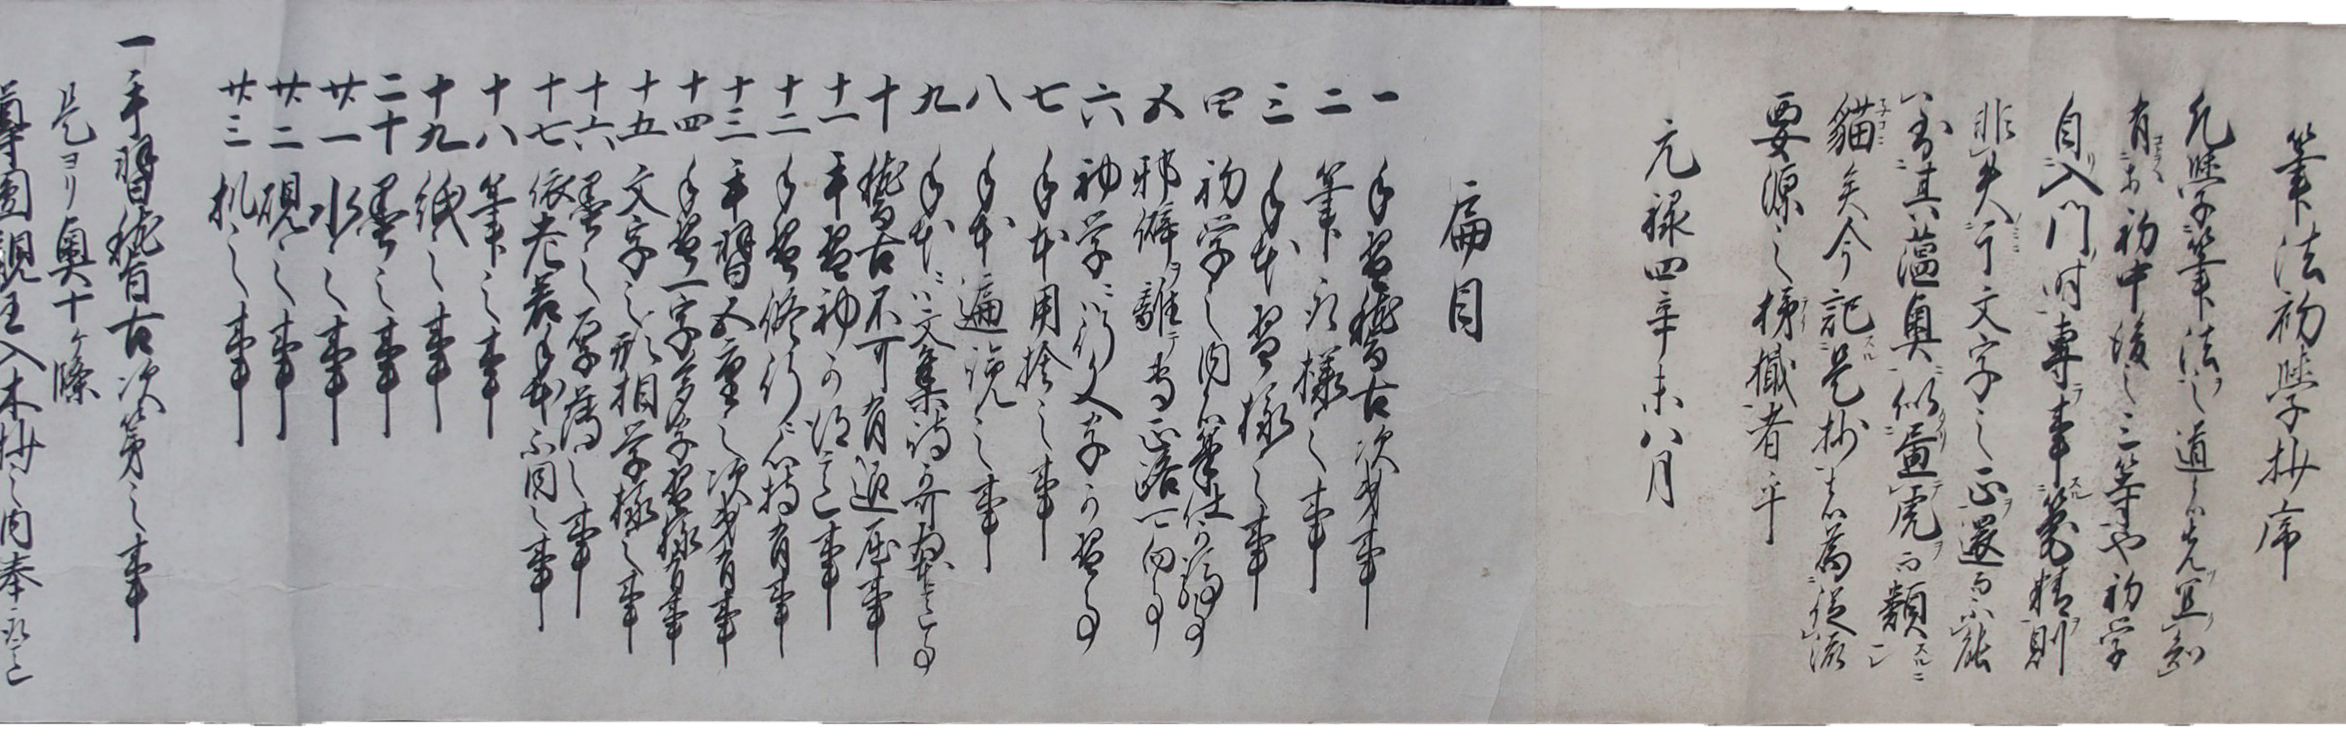 筆法初學抄序
凡學筆法之道者先宜知
有初中後之三等や初学
自入門時專事筆精則
非失行文字之正還而不能
到其蘊奥似畫虎而類
貓矣今記是抄者為從流
要源之梯檝者乎
元禄四辛未八月
扁目
一 手習稽古次第事
二 筆取様之事
三 手本習様之事
四 初学之内心筆仕可嗜事
五 邪僻ヲ離テ専正路一向事
六 初学ニハ行文字可習事
七 手本用捨之事
八 手本遍読之事
九 手本ニハ文集詩
十 稽古不可有退屈事
十一 手習初可得心事
十二 手習修行ニ心持有事
十三 手習五重之次第有事
十四 手習一字多字習様有事
十五 文字之形相学様之事
十六 墨之厚薄之事
十七 依老若手本不同之事
十八 筆之事
十九 紙之事
二十 墨之事
廿一 水之事
廿二 硯之事
廿三 机之事
一 手習稽古次第之事
是ヨリ奥十ヶ條
尊圓親王入木抄之内奉